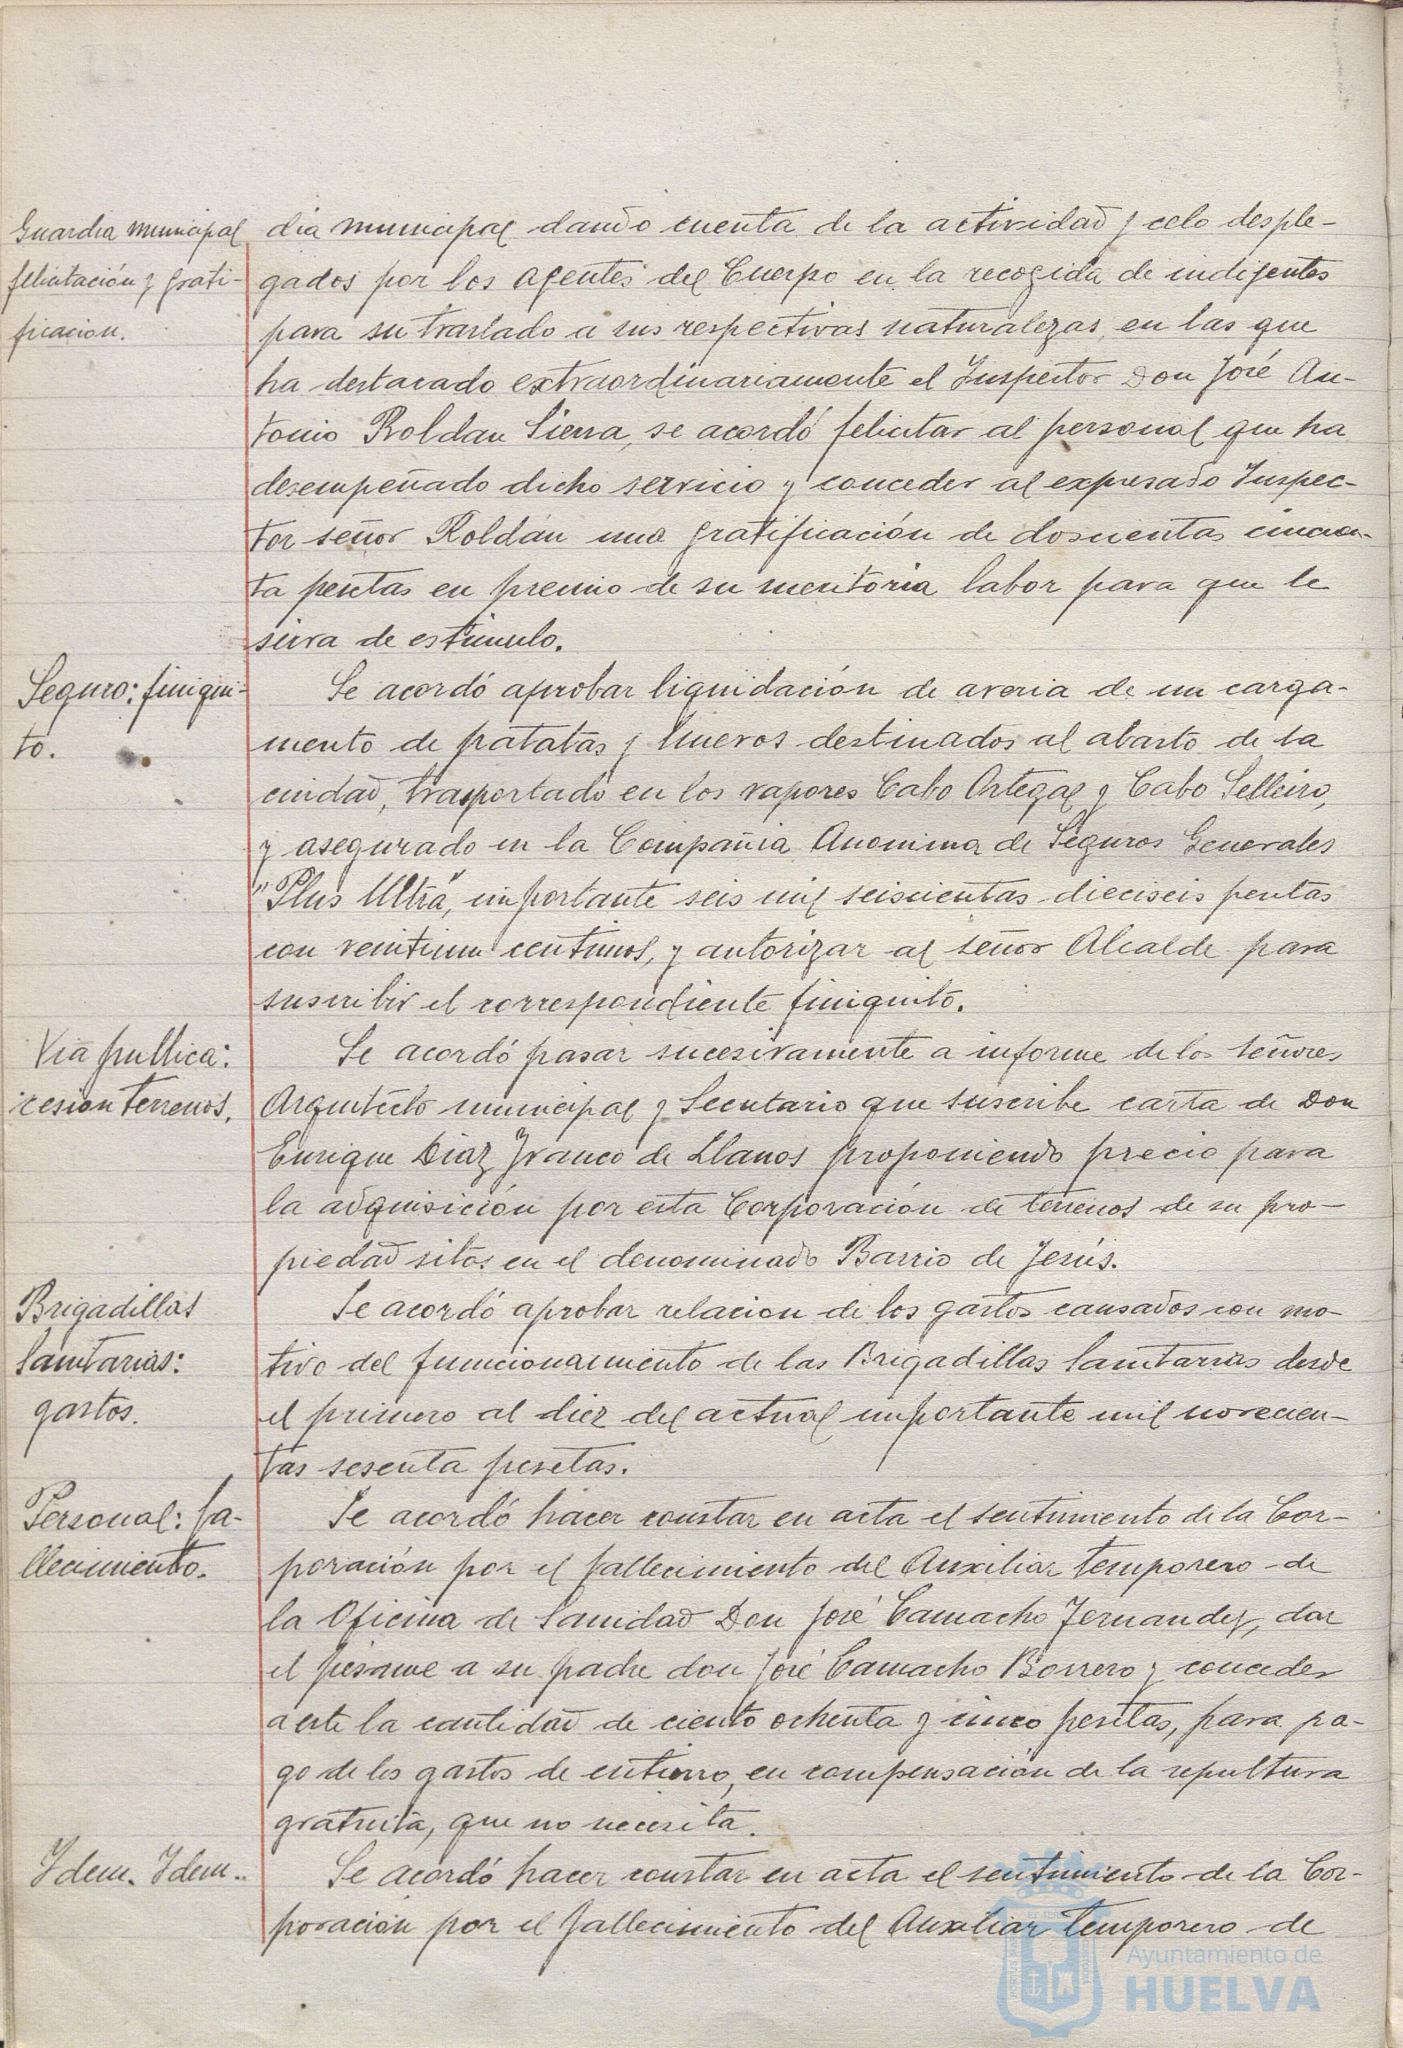 Guardia municipal
felicitación y grati-
ficacion.
dia municipal dando cuenta de la actividad y celo desple-
gados por los agentes del Cuerpo en la recogida de indigentes
para su traslado a sus respectivas naturalezas, en las que
ha destacado extraordinariamente el Inspector Don José An-
tonio Roldan Sierra, se acordó felicitar al personal que ha
desempeñado dicho servicio y conceder al expresado Inspec-
tor señor Roldán una gratificación de doscientas cincuen-
ta pesetas en premio de su meritoria labor para que le
sirva de estimulo.
Seguro: finiqui-
to.
Se acordó aprobar liquidación de averia de un carga-
mento de patatas y huevos destinados al abasto de la
ciudad, trasportado en los vapores Cabo Ortegal y Cabo Selleiro,
y asegurado en la Compañia Anonima de Seguros Generales
"Plus Ultra", importante seis mil seiscientas dieciseis pesetas
con veintiun centimos, y autorizar al señor Alcalde para
suscribir el correspondiente finiquito.
Via publica:
cesion terrenos.
Se acordó pasar sucesivamente a informe de los señores
Arquitecto municipal y Secretario que suscribe carta de Don
Enrique Diaz Franco de Llanos proponiendo precio para
la adquisición por esta Corporación de terrenos de su pro-
piedad sitos en el denominado Barrio de Jesús.
Brigadillas
Sanitarias:
gastos.
Se acordó aprobar relacion de los gastos causados con mo-
tivo del funcionamiento de las Brigadillas Sanitarias desde
el primero al diez del actual importante mil novecien-
tas sesenta pesetas.
Personal: fa-
llecimiento.
Se acordó hacer constar en acta el sentimiento de la Cor-
poración por el fallecimiento del Auxiliar temporero de
la Oficina de Sanidad Don José Camacho Fernandez, dar
el pésame a su padre don José Camacho Borrero y conceder
a este la cantidad de ciento ochenta y cinco pesetas, para pa-
go de los gastos de entierro, en compensacion de la sepultura
gratuita, que no necesita.
Idem. Idem..
Se acordó hacer constar en acta el sentimiento de la Cor-
poración por el fallecimiento del Auxiliar temporero de
Ayuntamiento de
HUELVA